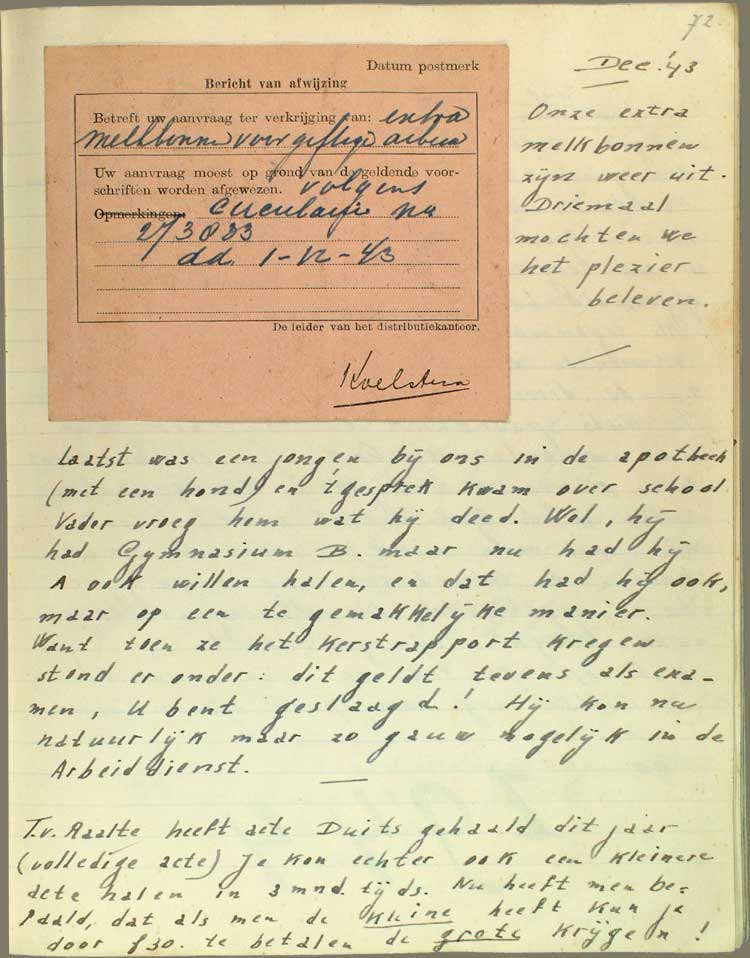 72.
Datum postmerk
Bericht van afwijzing
Betreft uw aanvraag ter verkrijging van: extra
melkbonnen voor giftige arbeid
Uw aanvraag moest op grond van de geldende voor-
schriften worden afgewezen. volgens
Opmerkingen: circulaire no
273033
dd. 1-12-43
De leider van het distributiekantoor,
Dec. '43
Onze extra
melkbonnen
zijn weer uit.
Driemaal
mochten we
het plezier
beleven.
Laatst was een jongen bij ons in de apotheek
(met een hond) en 't gesprek kwam over school
Vader vroeg hem wat hij deed. Wel, hij
had Gymnasium B. maar nu had hij
A ook willen halen, en dat had hij ook,
maar op een te gemakkelijke manier.
Want toen ze het Kerstrapport kregen
stond er onder: dit geldt tevens als exa-
men, U bent geslaagd! Hij kon nu
natuurlijk maar zo gauw mogelijk in de
Arbeiddienst.
T.v. Raalte heeft acte Duits gehaald dit jaar
(volledige acte) Je kon echter ook een kleinere
acte halen in 3 mnd. tijds. Nu heeft men be-
paald, dat als men de kleine heeft kun je
door f30. te betalen de grote krijgen!